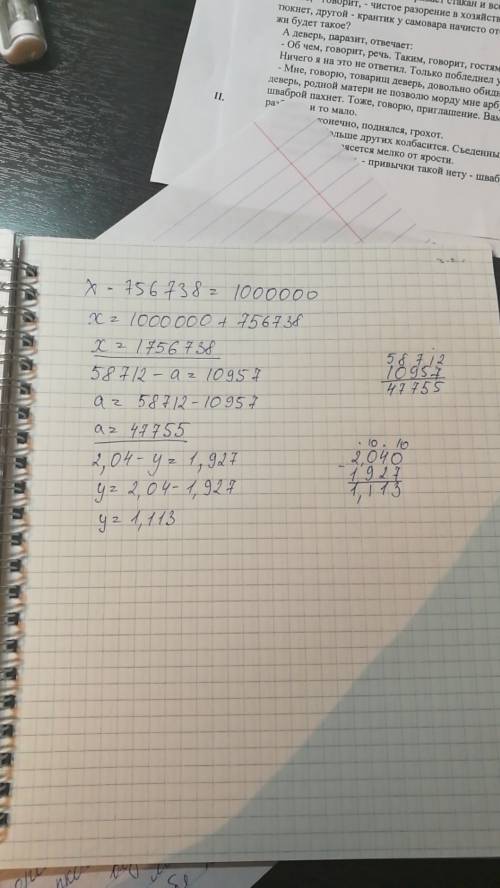 стакан и все
говорит, - чистое разорение в хозяйств
тюкнет, другой - крантик у самовара начисто от
жи будет такое?
А деверь, паразит, отвечает:
- Об чем, говорит, речь. Таким, говорит, гостям
Ничего я на это не ответил. Только побледнел у
- Мне, говорю, товарищ деверь, довольно обидн
деверь, родной матери не позволю морду мне арб
шваброй пахнет. Тоже, говорю, приглашение. Вам
и то мало.
II.
конечно, поднялся, грохот.
ольше других колбасится. Съеденны
ясется мелко от ярости.
- привычки такой нету - шваб
x - 756738 = 1000000
x = 1000000 + 756738
x = 1756738
58712 - a = 10957
a = 58712 - 10957
a = 47755
2,04 - y = 1,927
y = 2,04 - 1,927
y = 1,113
58712
10957
47755
10 10
- 2,040
1,927
1,113